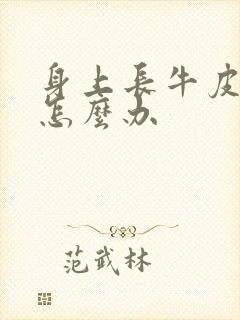 身上長牛皮
怎麼办
范武林